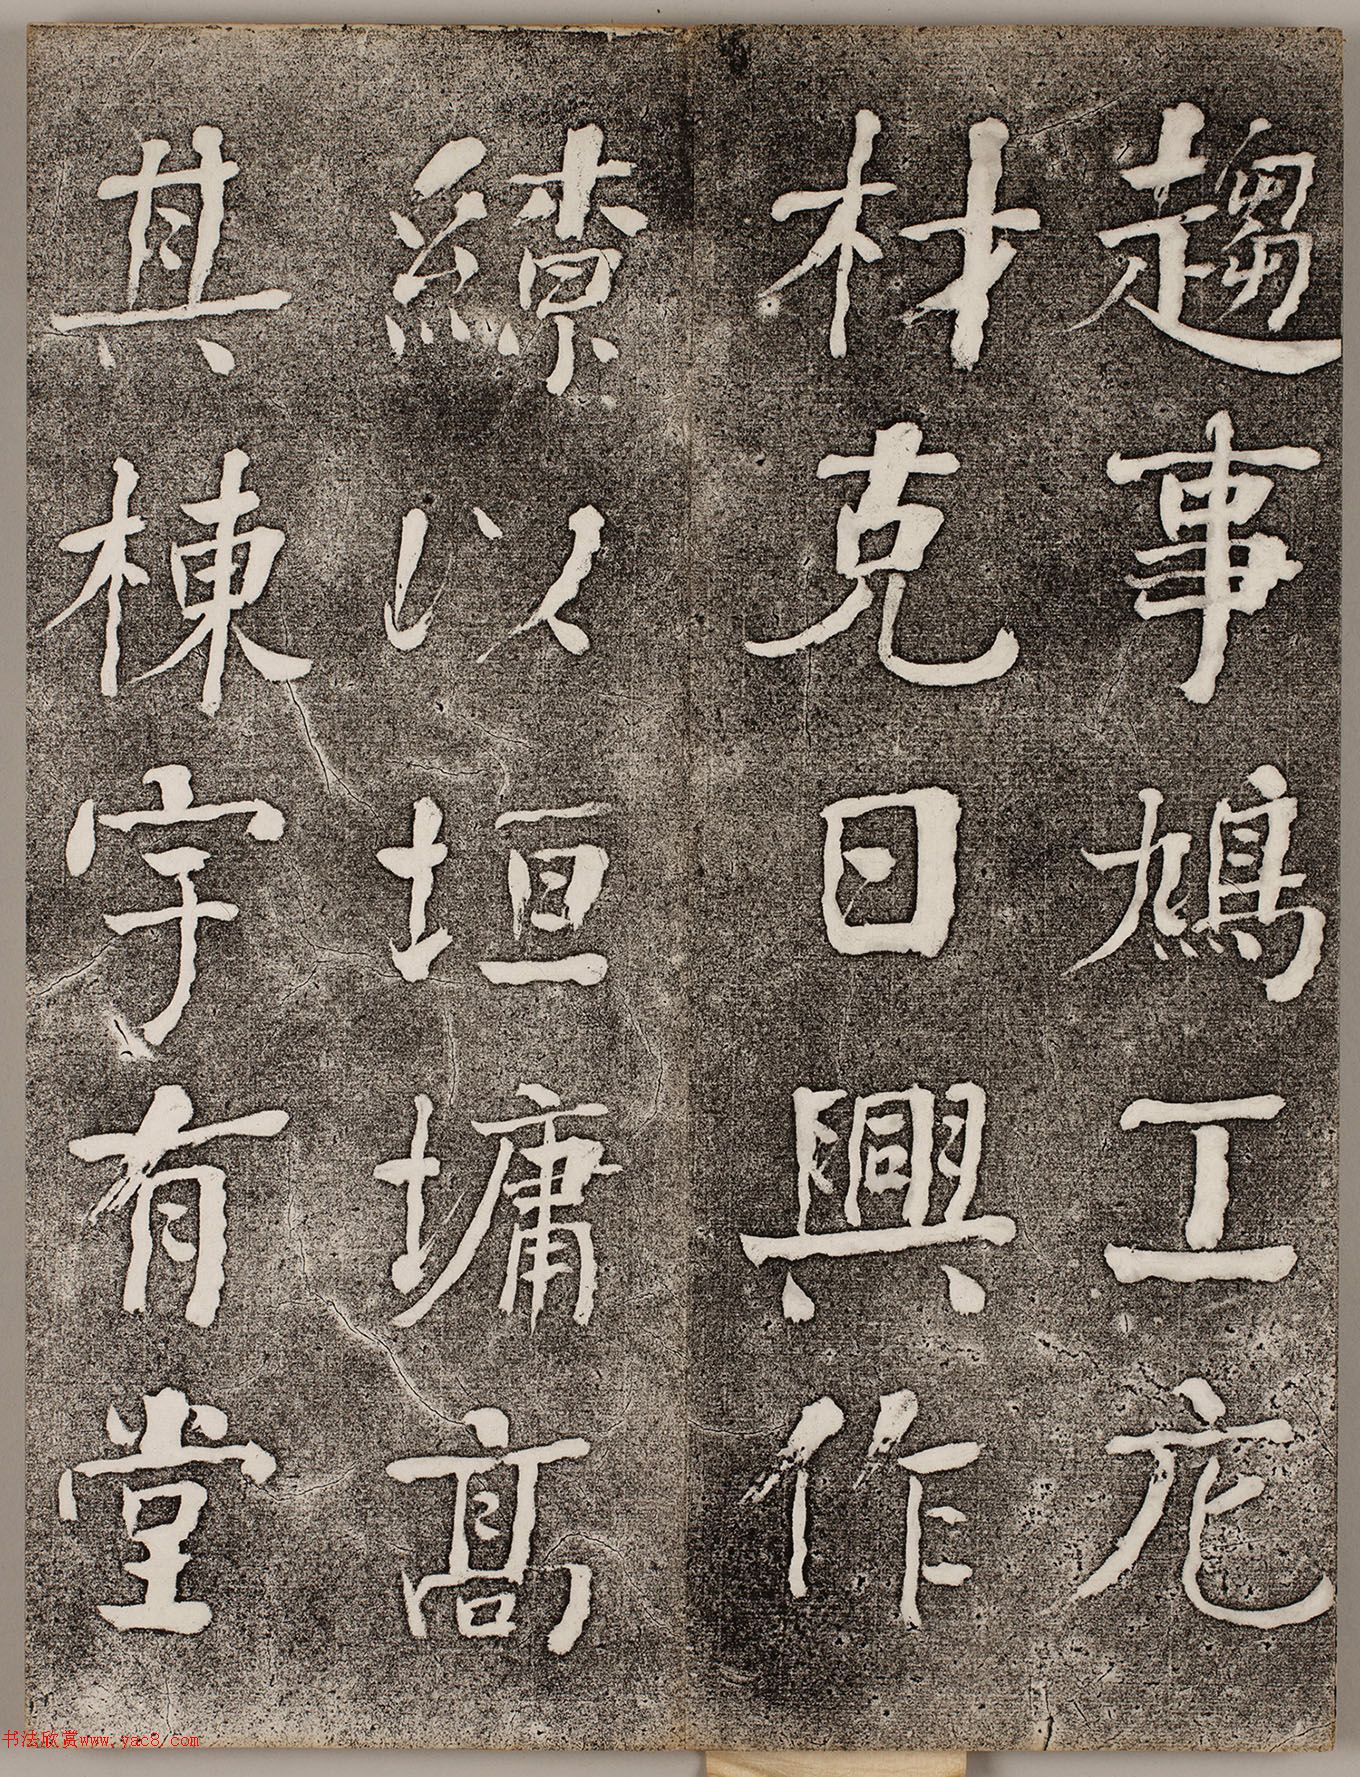 趨事鳩工庀
材克日興作
繚以垣墉高
其棟宇有堂
书法欣赏www.yac8.com